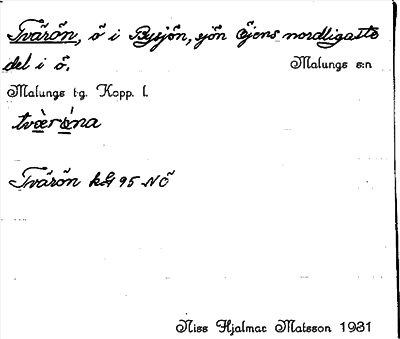 Tvärön, ö i Bysjön, sjön Öjens nordligaste
del i ö. Malungs s:n
Malungs t-g. Kopp. l.
tværǿna
Tvärön kG 95 NÖ
Niss Hjalmar Matsson 1931